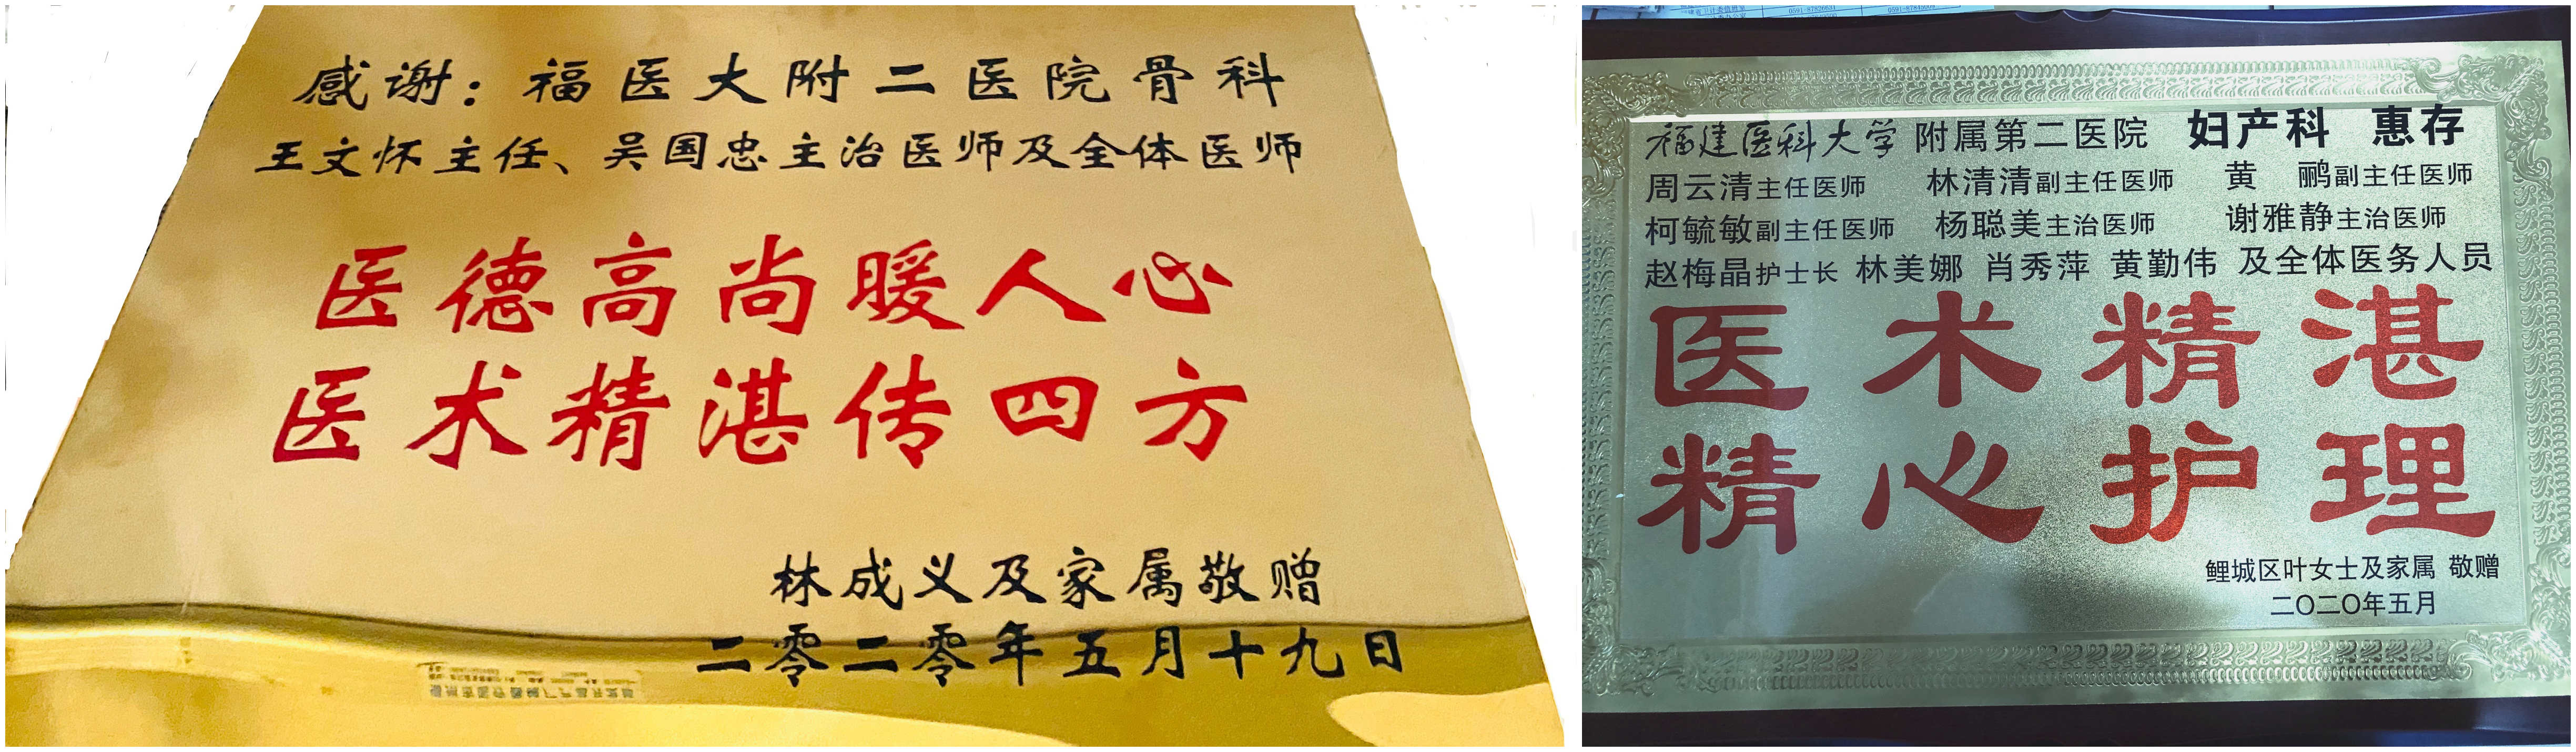 感谢：福医大附二医院骨科
王文怀主任、吴国忠主治医师及全体医师
医德高尚暖人心
医术精湛传四方
林成义及家属敬赠
二零二零年五月十九日
福建医科大学 附属第二医院 妇产科 惠存
周云清主任医师 林清清副主任医师 黄 鹂副主任医师
柯毓敏副主任医师 杨聪美主治医师 谢雅静主治医师
赵梅晶护士长 林美娜 肖秀萍 黄勤伟 及全体医务人员
医术精湛
精心护理
鲤城区叶女士及家属 敬赠
二〇二〇年五月